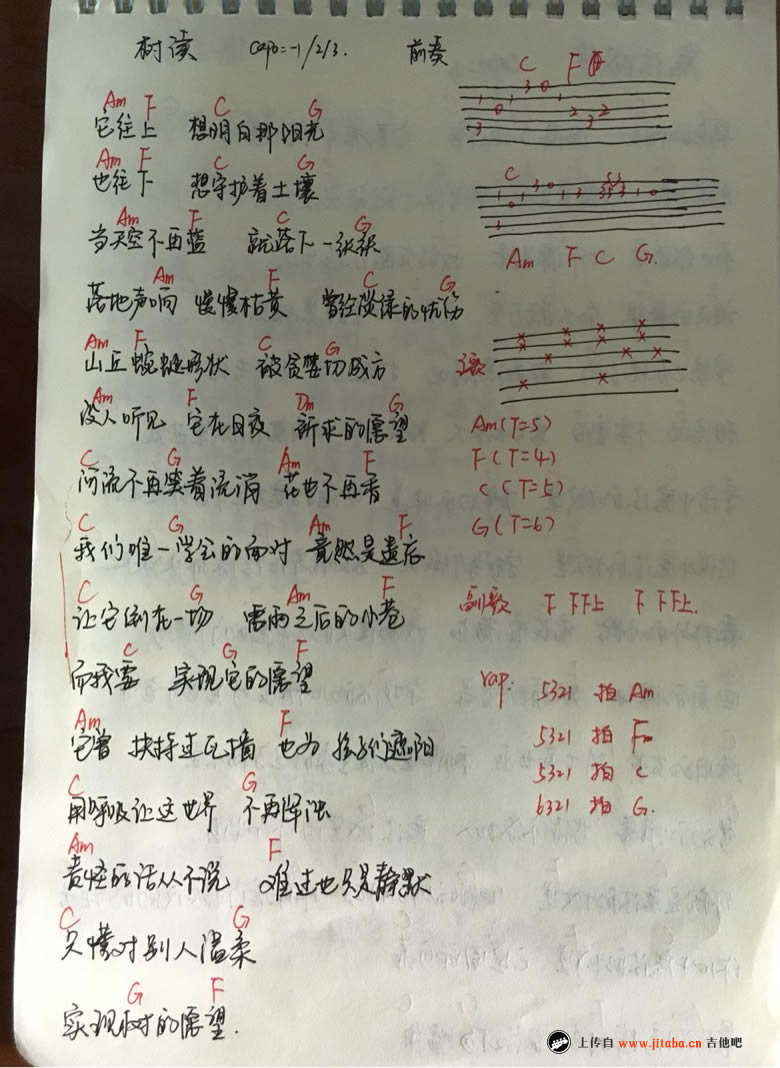 树读 capo=-1/2/3. 前奏
C F
Am F C G
它往上 想明白那阳光
Am F C G
也往下 想守护着土壤
Am F C G
当天空不再蓝 就落下一张张
Am F C G
落地声响 慢慢枯黄 曾经淡绿的忧伤
Am F C G
山丘蜿蜒形状 被贪婪切成方
Am F Dm G
没人听见 它在日夜 祈求的愿望
C G Am F
河流不再笑着流淌 花也不再香
C G Am F
我们唯一学会的面对 竟然是遗忘
C G Am F
让它倒在一场 雷雨之后的小巷
C G F
而我要 实现它的愿望
Am F
它曾 扶持过瓦墙 也为 孩子们遮阳
C G
用呼吸让这世界 不再浑浊
Am F
责怪的话从不说 难过也只是静默
C G
只懂对别人温柔
G F
实现树的愿望.
C
Am F C G.
主歌
Am(T=5)
F(T=4)
C(T=5)
G(T=6)
副歌 下 下下上 下 下下上.
rap: 5321 拍 Am
5321 拍 F
5321 拍 C
6321 拍 G.
上传自 www.jitaba.cn 吉他吧